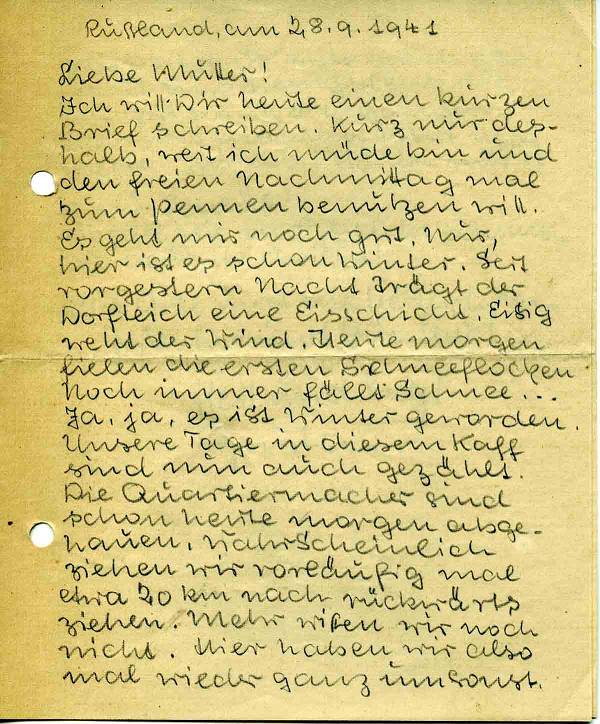 Rußland, am 28.9.1941
Liebe Mutter!
Ich will Dir heute einen kurzen
Brief schreiben. Kurz nur des-
halb, weil ich müde bin und
den freien Nachmittag mal
zum pennen benützen will.
Es geht mir noch gut. Nur,
hier ist es schon Winter. Seit
vorgestern Nacht trägt der
Dorfteich eine Eisschicht. Eisig
weht der Wind. Heute morgen
fielen die ersten Schneeflocken
Noch immer fällt Schnee...
Ja, ja, es ist Winter geworden.
Unsere Tage in diesem Kaff
sind nun auch gezählt.
Die Quartiermacher sind
schon heute morgen abge-
hauen. Wahrscheinlich
ziehen wir vorläufig mal
etwa 20 km nach rückwärts
ziehen. Mehr wißen wir noch
nicht. Hier haben wir also
mal wieder ganz umsonst.